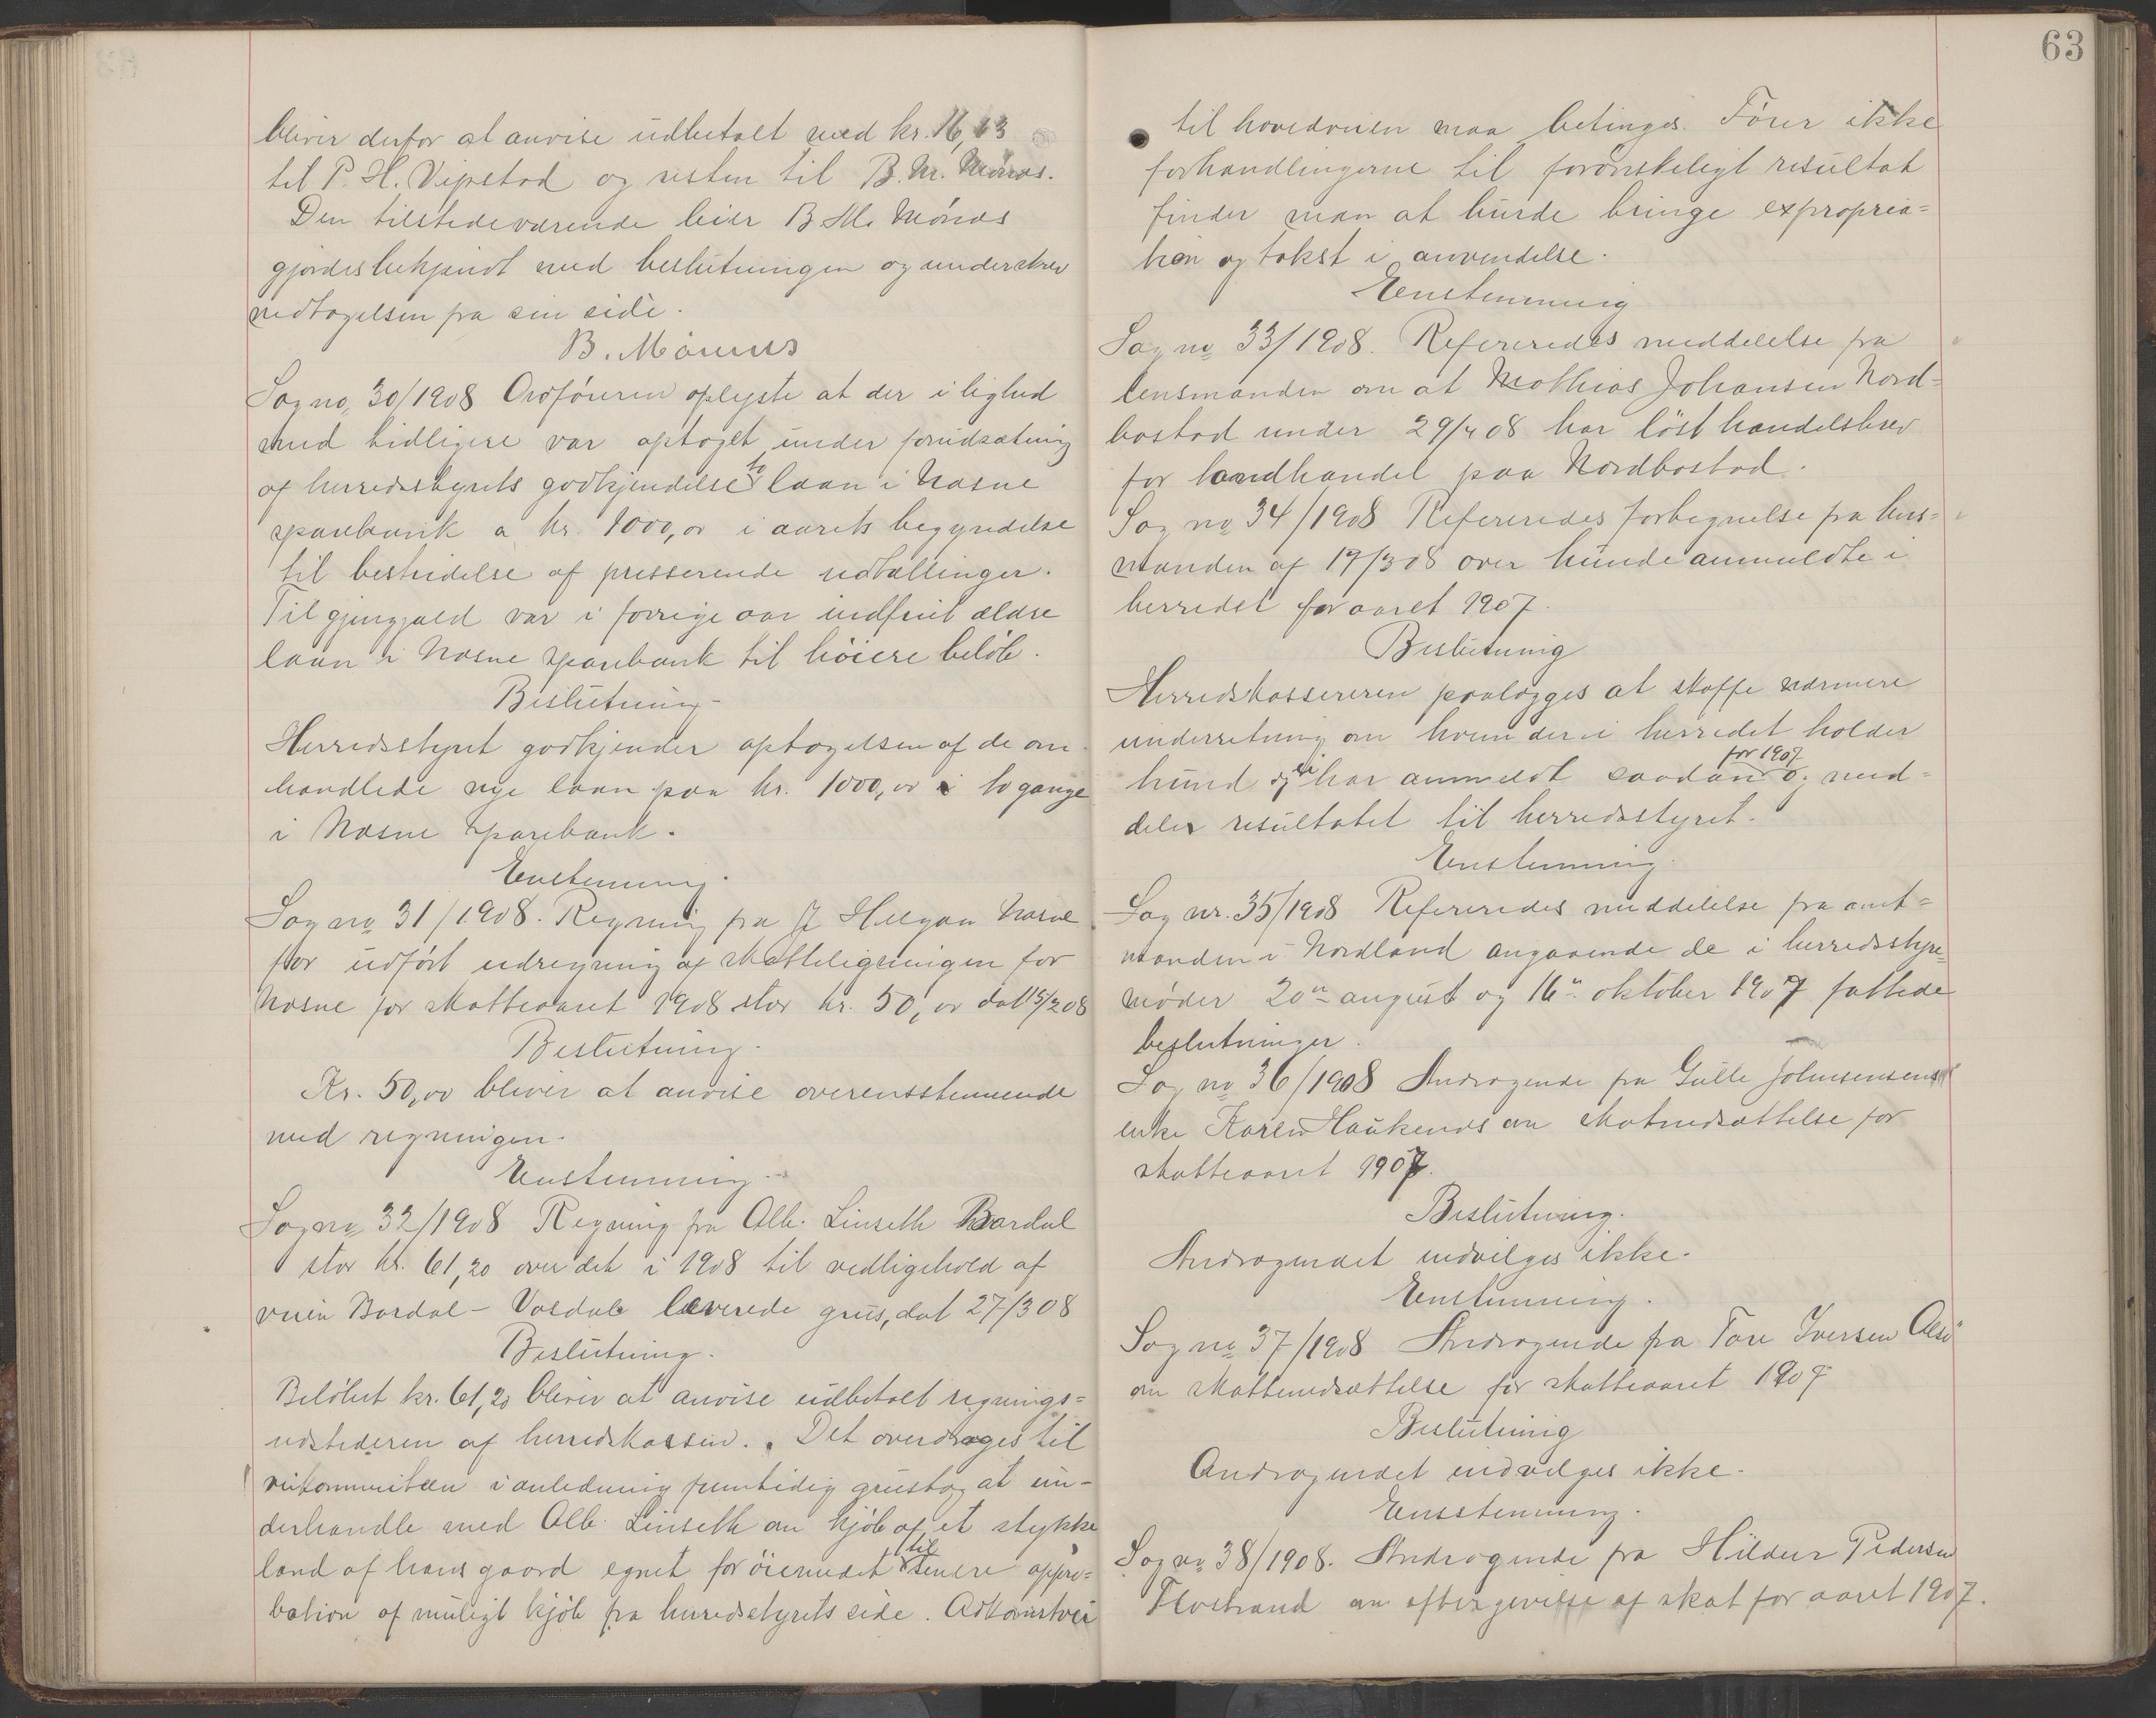 63
bliver derfor at anvise udbetalt med kr. 16,63
til P. H. Vipstad og resten til B. M. Mönnes.
Den tilstedeværende leier B. M. Mönnes
gjordes bekjendt med beslutningen og underskrev
vedtagelsen fra sin side.
B. Mönnes
Sag no 30/1908 Ordföreren oplyste at der i lighed
med tidligere var optaget under forudsætning
af herredsstyrets godkjendelse to laan i Nasne
sparebank a kr. 1000,oo i aarets begyndelse
til bestridelse af presserende udtællinger.
Til gjengjæld var i forrige aar indfriet ældre
laan i Nasne sparebank til höiere belöb.
Beslutning
Herredsstyret godkjender optagelsen af de om
handlede nye laan paa kr. 1000,oo to gange
i Nasne sparebank.
Enstemmig.
Sag no 31/1908. Regning fra J Helgaa Nasne
for udfört udregning af skatteligningen for
Nasne for skatteaaret 1908 stor kr. 50,oo dat 15/2 08
Beslutning.
Kr. 50,oo bliver at anvise overensstemmende
med regningen.
Enstemmig
Sag no 32/1908 Regning fra Alb. Linseth Bardal
stor kr. 61,20 over det i 1908 til vedligehold af
veien Bardal - Vasdal leverede grus, dat 27/3 08
Beslutning.
Belöbet kr. 61,20 bliver at anvise udbetalt regnings=
udstederen af herredskassen. Det overdrages til
veikommiteen i anledning fremtidig grustag at un-
derhandle med Alb. Linseth om kjöb af et stykke
land af hans gaard egnet for öiemedet til senere appro=
bation af muligt kjöb fra herredsstyrets side. Adkomstvei
til hovedveien maa betinges. Förer ikke
forhandlingerne til forönskeligt resultat
finder man at burde bringe expropria=
tion og takst i anvendelse.
Eenstemmig
Sag no 33/1908. Refereredes meddelelse fra
lensmanden om at Mathias Johansen Nord=
bostad under 29/4 08 har löst handelsbrev
for landhandel paa Nordbostad.
Sag no 34/1908 Refereredes fortegnelse fra lens=
manden af 17/3 08 over hunde anmeldte i
herredet for aaret 1907.
Beslutning
Herredskassereren paalægges at skaffe nærmere
underretning om hvem der i herredet holder
hund og ei har anmeldt saadan for 1907 og med=
deler resultatet til herredsstyret.
Enstemmig
Sag nr. 35/1908 Refereredes meddelelse fra amt=
manden i Nordland angaaende de i herredsstyre=
møder 20de august og 16de oktober 1907 fattede
beslutninger.
Sag no 36/1908 Andragende fra Gulle Johnsensens
enke Karen Haukenes om skatnedsættelse for
skatteaaret 1907.
Beslutning.
Andragendet indvilges ikke.
Enstemmig.
Sag no 37/1908 Andragende fra Tore Iversen Alsö
om skattenedsættelse for skatteaaret 1907
Beslutning
Andragendet indvilges ikke.
Ensstemmig.
Sag no 38/1908. Andragende fra Hildur Pedersen
om eftergivelse af skat for aaret 1907.